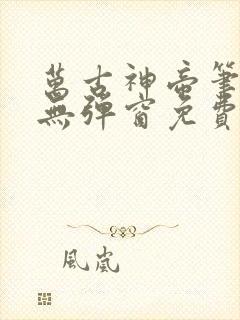 萬古神帝筆
無彈窗免費
風嵐